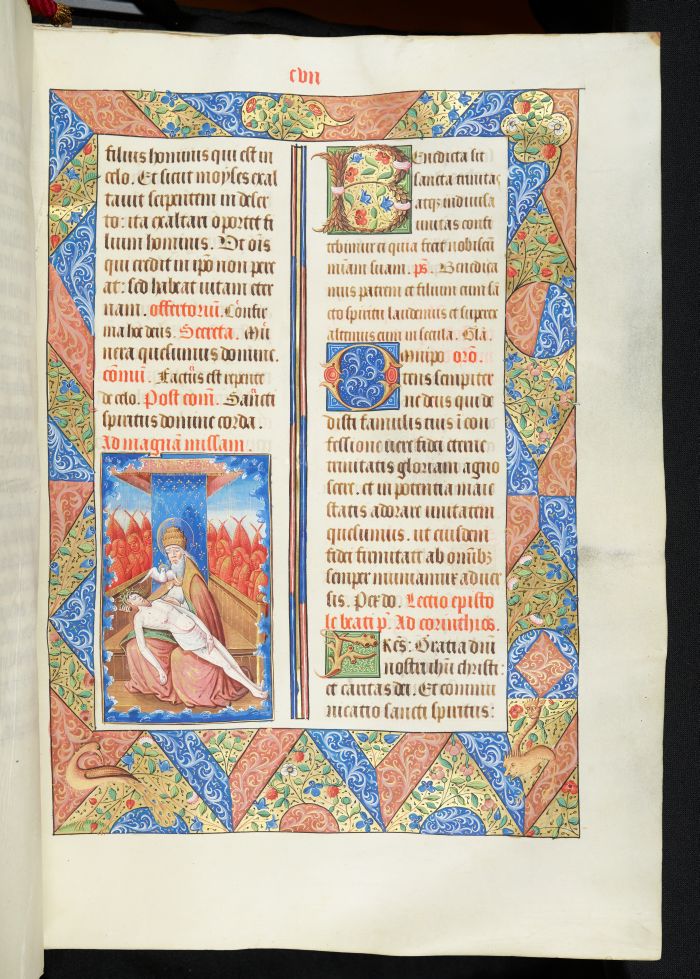 cvii
filius hominis qui est in
celo. Et sicut moyses exal
tauit serpentem in deser
to: ita exaltari oportet fi
lium hominis. Vt oīs
qui credit in ip̄o non pere
at: sed habeat uitam eter
nam. offertoriū. Cōfir
ma hoc deus. Secreta. Mu
nera quesumus domine.
cōmui. Factus est repente
de celo. Post com̄. Sancti
spiritus domine corda.
Ad magnā missam.
Benedicta sit
sancta trinitas
atq; indiuisa
unitas confi
tebimur ei quia fecit nobiscū
miām suam. ps. Benedica
mus patrem et filium cum sā
cto spiritu laudemus et superex
altemus eum in secula. Gla.
Omnipo orō.
tens sempiter
ne deus qui de
disti famulis tuis i con
fessione uere fidei eterne
trinitatis gloriam agno
scere. et in potentia maie
statis adorare unitatem
quesumus. ut eiusdem
fidei firmitate ab omīb;
semper muniamur aduer
sis. Per do. Lectio episto
le beati p. Ad corinthios.
Fres: Gratia dnī
nostri ihū christi:
et caritas dei. Et commu
nicatio sancti spiritus: